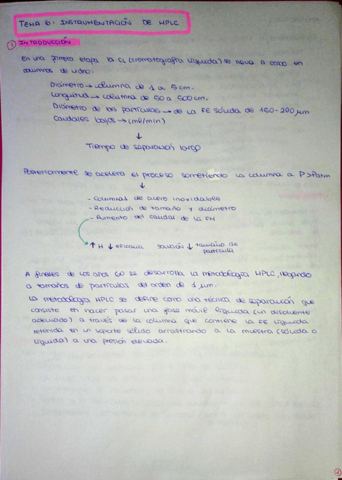 TEMA 6: INSTRUMENTACIÓN DE HPLC
① INTRODUCCIÓN
En una primera etapa la CL (cromatografía líquida) se lleva a cabo en
columnas de vidrio:
Diámetro → columna de 1 a 5 cm.
Longitud → columna de 50 a 500 cm.
Diámetro de las partículas → de la FE sólida de 150-200 µm
Caudales bajos → (ml/min)
↓
Tiempo de separación largo
Posteriormente se acelera el proceso sometiendo la columna a P>Patm
↓
- Columnas de acero inoxidable
- Reducción de tamaño y diámetro
- Aumento del caudal de la FM
↑ H ↓ eficacia solución ↓ tamaño de
partícula
A finales de los años 60 se desarrolla la metodología HPLC, llegando
a tamaños de partículas del orden de 1 µm.
La metodología HPLC se define como una técnica de separación que
consiste en hacer pasar una fase móvil líquida (un disolvente
adecuado) a través de la columna que contiene la FE líquida
retenida en un soporte sólido arrastrando a la muestra (sólida o
líquida) a una presión elevada.